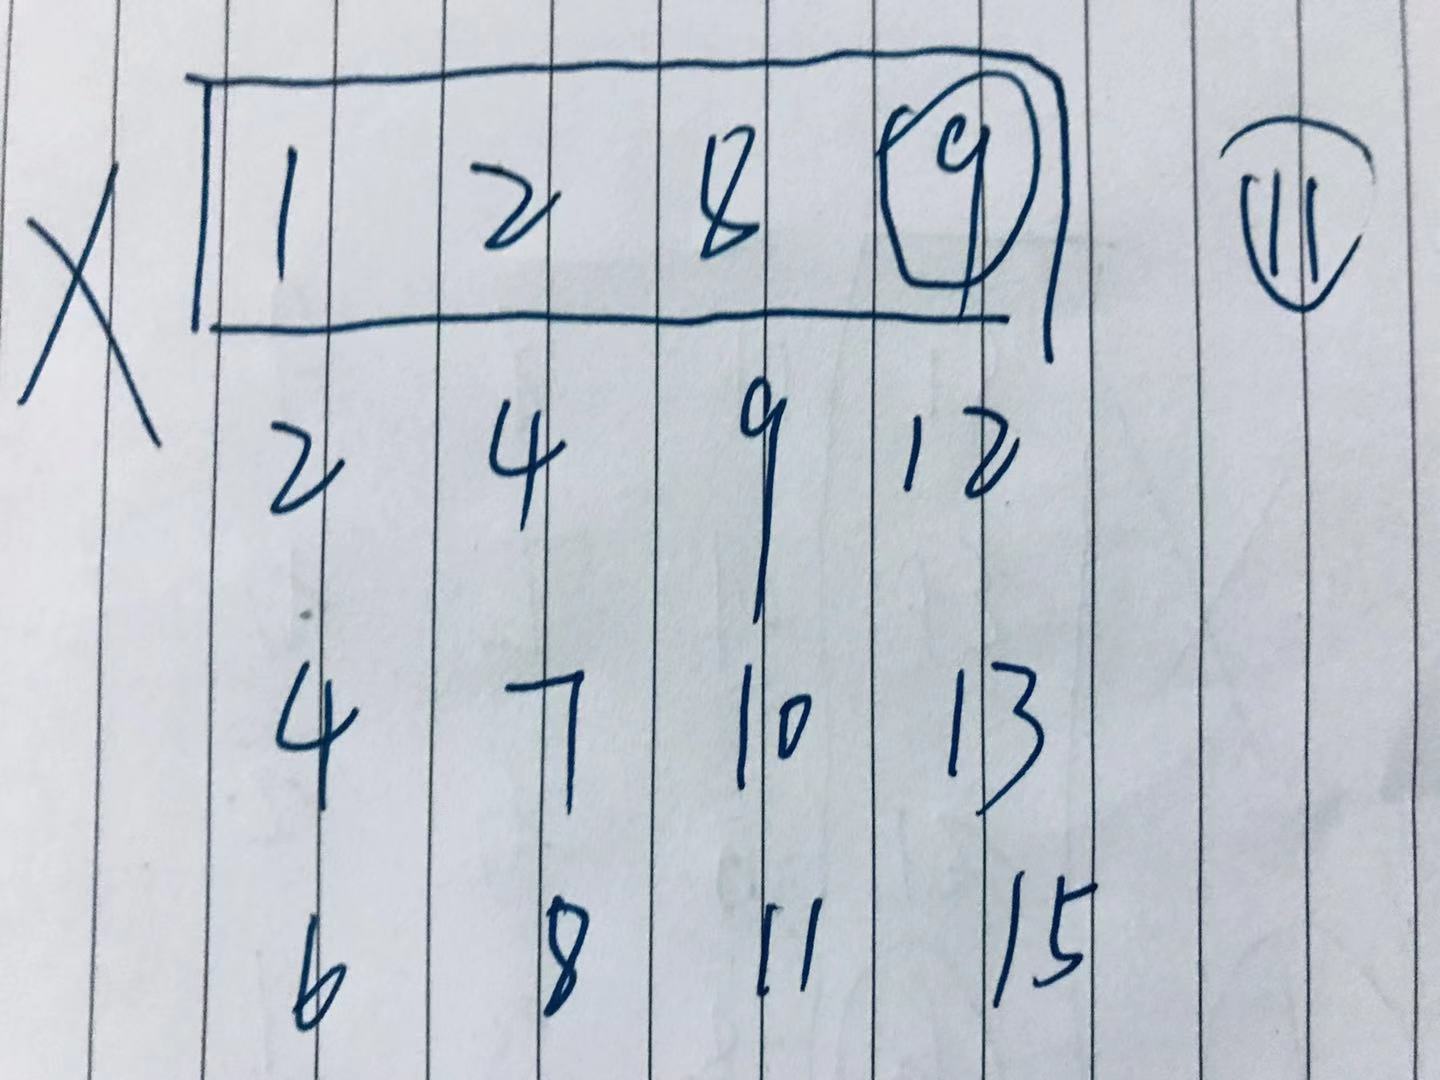 X 1 2 8 9 11
2 4 9 12
4 7 10 13
6 8 11 15